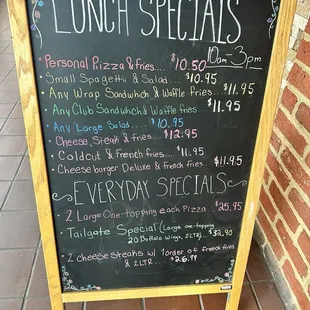 LUNCH SPECIALS
10am - 3pm
• Personal Pizza & fries.... $10.50
• Small Spaghetti & Salad..... $10.95
• Any Wrap Sandwhich & Waffle fries... $11.95
• Any Club Sandwhich & Waffle fries... $11.95
• Any Large Salad..... $10.95
• Cheese Steak & fries.... $12.95
• Coldcut & french fries.... $11.95
• Cheeseburger Deluxe & french fries.... $11.95
EVERYDAY SPECIALS
• 2 Large One-topping each Pizza.... $25.95
• Tailgate Special (Large one-topping
20 Buffalo Wings, 2LTR)... $32.90
• 2 cheese steaks w/ 1 order of french fries
& 2LTR.... $26.99